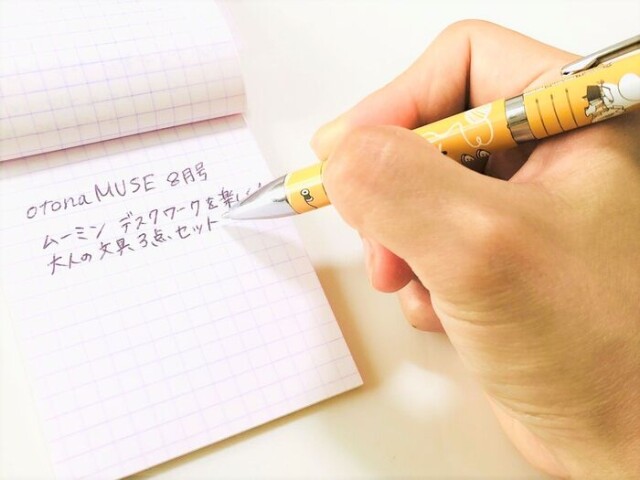 otona MUSE 8月号
ムーミン デスクワークを楽し
大人の文具3点セット